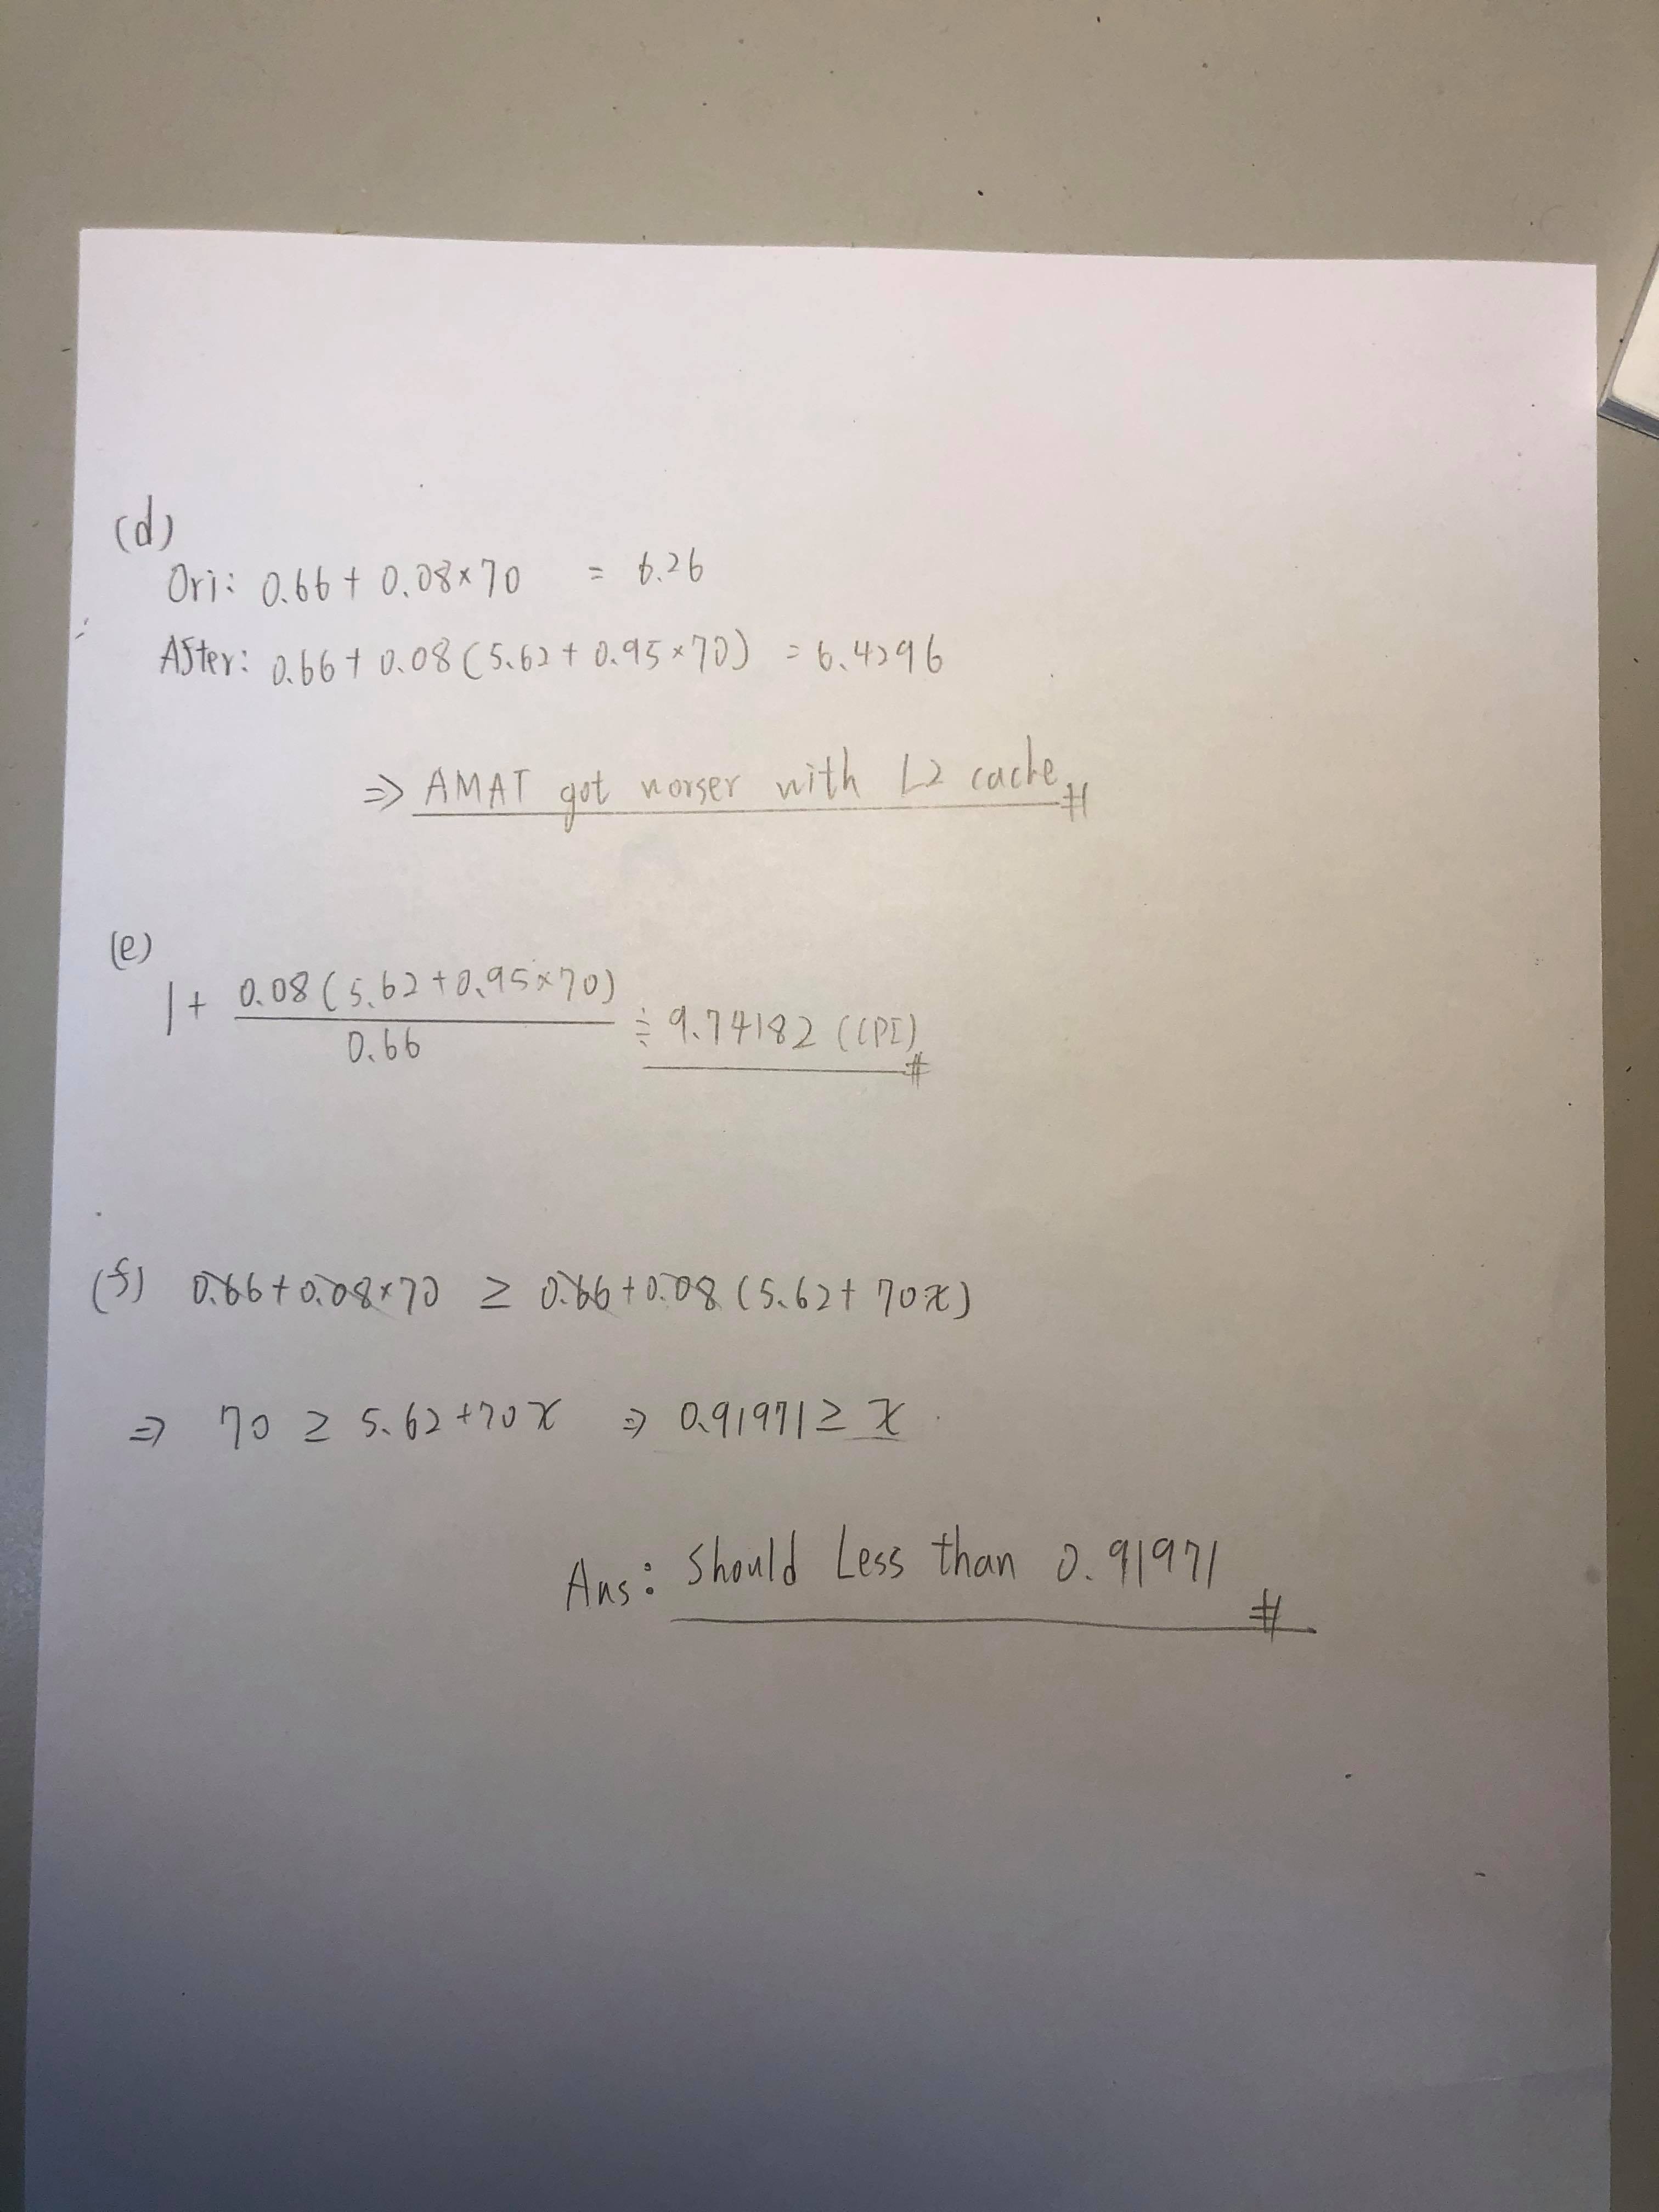 (d)
Ori: 0.66 + 0.08 × 70 = 6.26
After: 0.66 + 0.08 (5.62 + 0.95 × 70) = 6.4296
⇒ AMAT got worser with L2 cache #
(e)
1 + 0.08 (5.62 + 0.95 × 70) / 0.66 ≑ 9.74182 (CPI) #
(f) 0.66 + 0.08 × 70 ≥ 0.66 + 0.08 (5.62 + 70x)
⇒ 70 ≥ 5.62 + 70x ⇒ 0.91971 ≥ x
Ans: Should Less than 0.91971 #